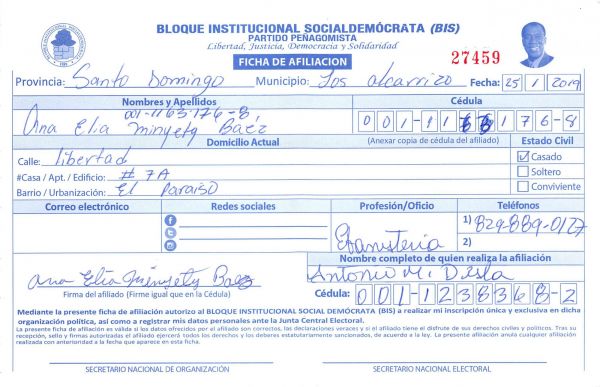 BLOQUE INSTITUCIONAL SOCIALDEMÓCRATA (BIS)
PARTIDO PEÑAGOMISTA
Libertad, Justicia, Democracia y Solidaridad
FICHA DE AFILIACION
27459
Provincia: Santo Domingo Municipio: Los alcarrizo Fecha: 25 1 2019
Nombres y Apellidos Cédula
001-1163176-8,
Ana Elia Minyety Baez
001-1163176-8
Domicilio Actual (Anexar copia de cédula del afiliado) Estado Civil
Calle: libertad Casado
#Casa / Apt. / Edificio: # 7A Soltero
Barrio / Urbanización: El Paraiso Conviviente
Correo electrónico Redes sociales Profesión/Oficio Teléfonos
Ebanisteria
1) 829-889-0127
2)
Nombre completo de quien realiza la afiliación
Ana Elia Minyety Baez Antonio M.
Firma del afiliado (Firme igual que en la Cédula) Cédula: 001-1238368-2
Mediante la presente ficha de afiliación autorizo al BLOQUE INSTITUCIONAL SOCIAL DEMÓCRATA (BIS) a realizar mi inscripción única y exclusiva en dicha
organización política, así como a registrar mis datos personales ante la Junta Central Electoral.
La presente ficha de afiliación es válida si los datos ofrecidos por el afiliado son correctos, las declaraciones veraces y si el afiliado tiene el disfrute de sus derechos civiles y políticos. Tras su
recepción, sello y firmas autorizadas el afiliado ejercerá todos los derechos y los deberes estatutariamente sancionados, de acuerdo a la ley. La presente afiliación anula cualquier afiliación
realizada con anterioridad a la fecha que aparece en esta ficha.
SECRETARIO NACIONAL DE ORGANIZACIÓN SECRETARIO NACIONAL ELECTORAL